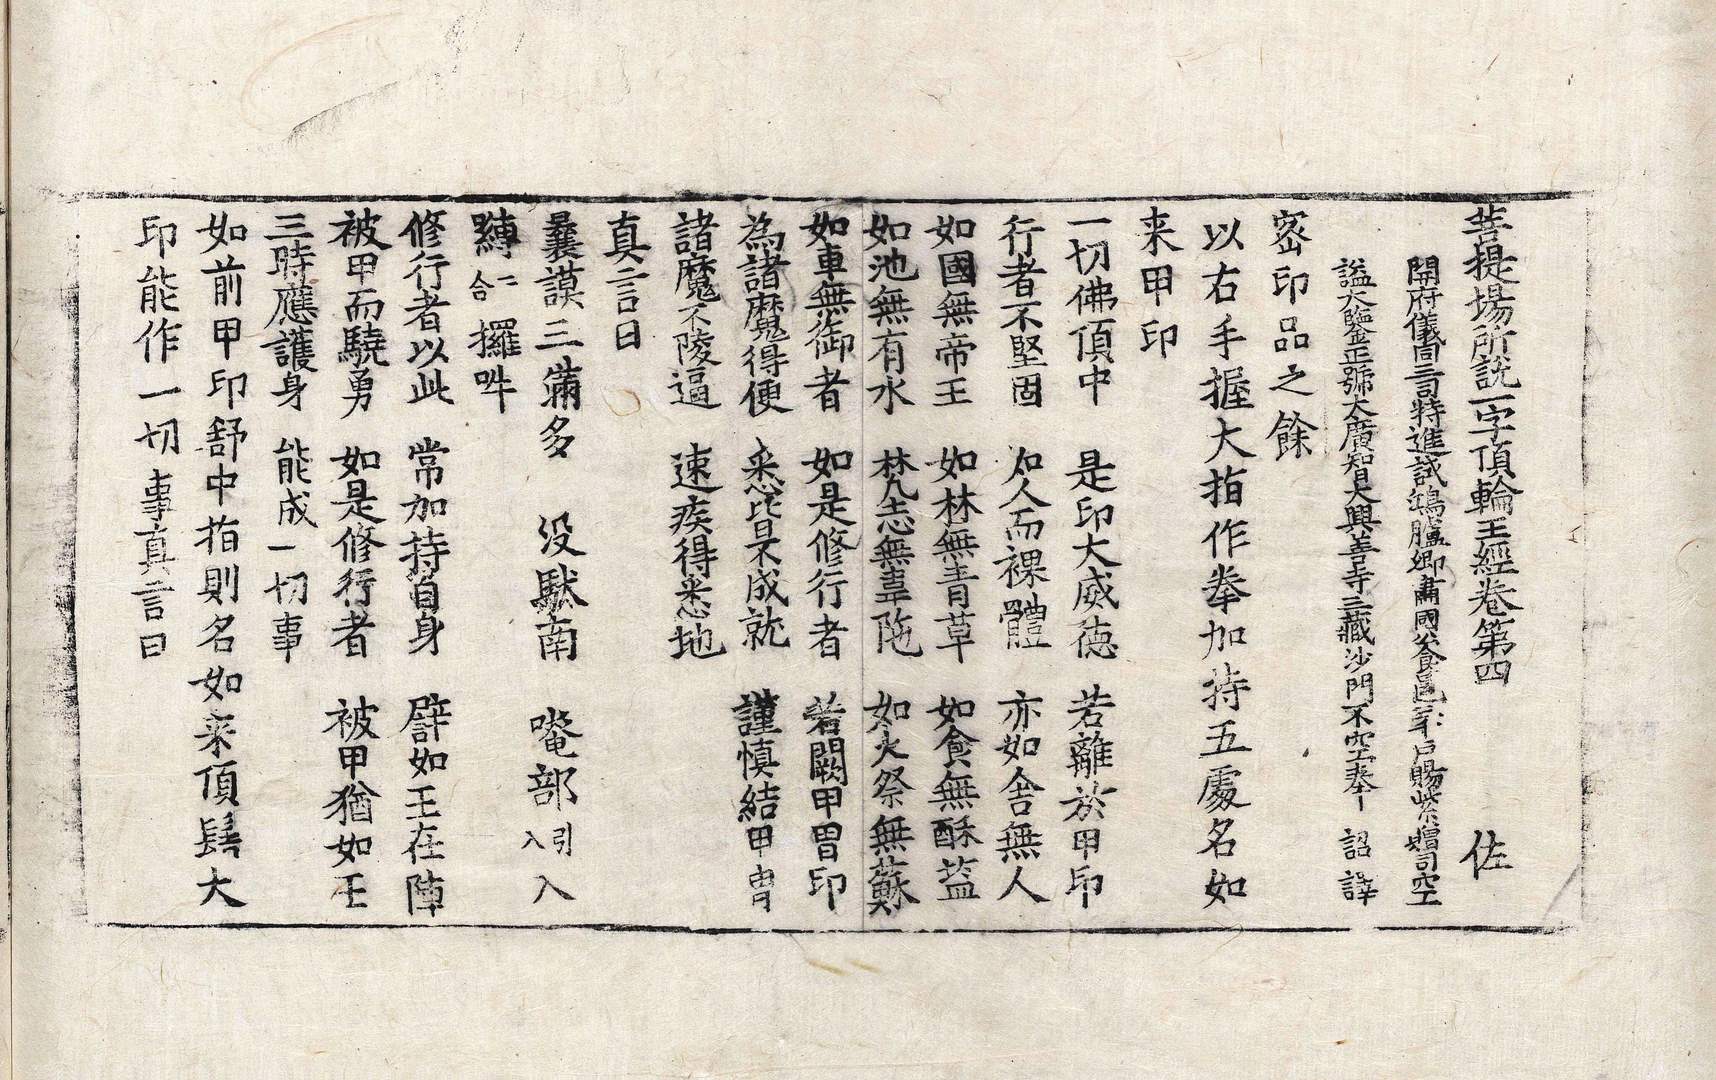 菩提場所說一字頂輪王經卷第四 佐
開府儀同三司特進試鴻臚卿肅國公食邑三千戶賜紫贈司空
謚大鑒正號大廣智大興善寺三藏沙門不空奉 詔譯
密印品之餘
以右手握大指作拳加持五處名如
来甲印
一切佛頂中 是印大威德 若離於甲印
行者不堅固 如人而裸體 亦如舍無人
如國無帝王 如林無青草 如食無酥益
如池無有水 梵志無韋陁 如火祭無蘇
如車無御者 如是修行者 若闕甲胄印
為諸魔得便 悉皆不成就 謹慎結甲冑
諸魔不陵逼 速疾得悉地
真言曰
曩謨三滿多 没馱南 唵部引入 入
縛二合 攞吽
修行者以此 常加持自身 譬如王在陣
被甲而驍勇 如是修行者 被甲猶如王
三時應護身 能成一切事
如前甲印舒中指則名如来頂髻大
印能作一切事真言曰